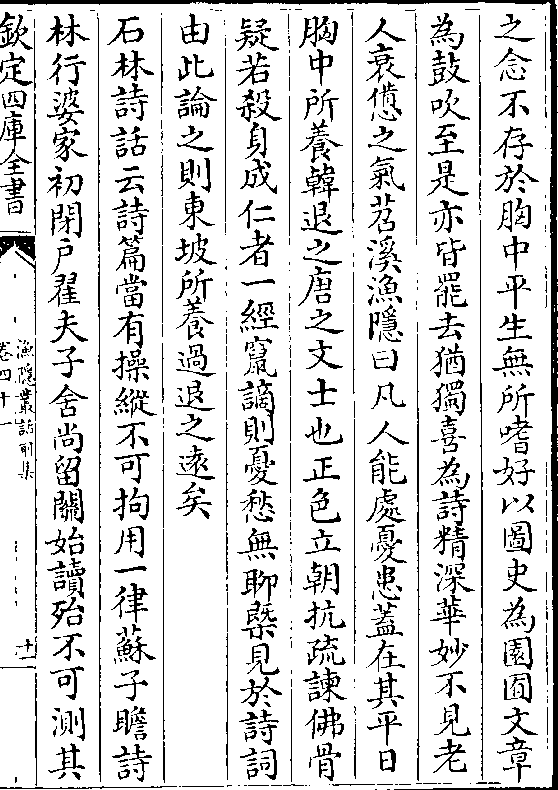 之念不存於胸中平生無所嗜好以圖史為園囿文章
為鼓吹至是亦皆罷去猶獨喜為詩精深華妙不見老
人衰憊之氣苕溪漁隱曰凡人能處憂患蓋在其平日
胸中所養韓退之唐之文士也正色立朝抗疏諫佛骨
疑若殺身成仁者一經竄謫則憂愁無聊槩見於詩詞
由此論之則東坡所養過退之遠矣
石林詩話云詩篇當有操縱不可拘用一律蘇子瞻詩
林行婆家初閉戶翟夫子舍尚留關始讀殆不可測其
欽定四庫全書
漁隱叢話前集
卷四十一
十一